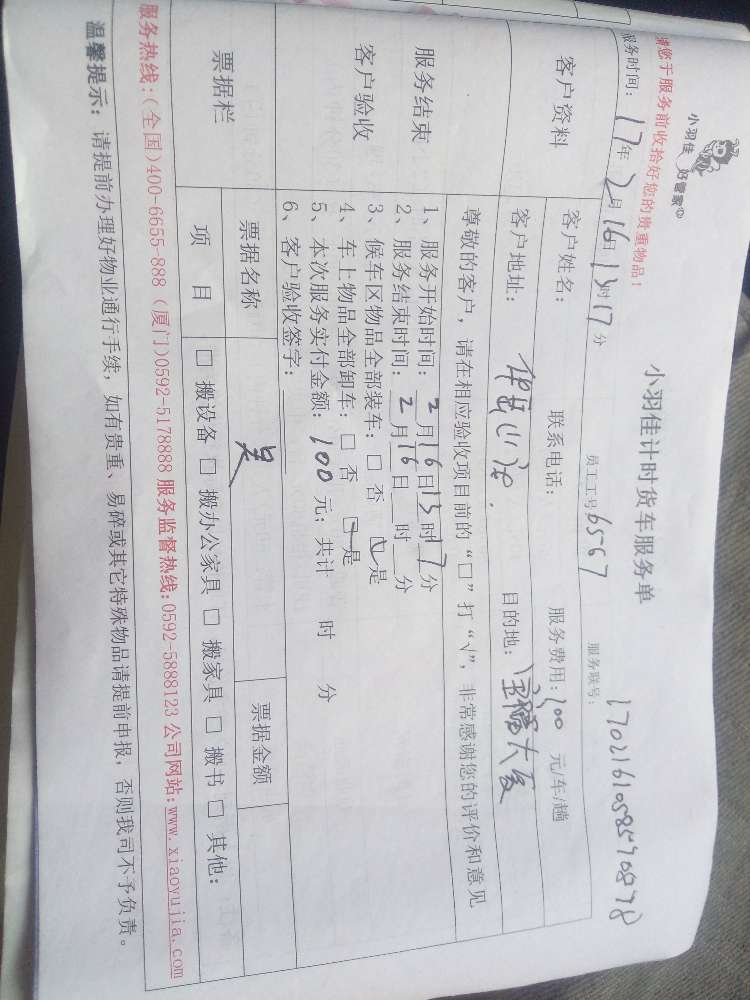 小羽佳 好管家
小羽佳计时货车服务单
请您于服务前收拾好您的贵重物品！
员工工号6567
服务联号：17021610585790878
服务时间：17年2月16日13时17分
客户资料
客户姓名： 联系电话： 服务费用：100元/车/趟
客户地址： 目的地：宝福大厦
服务结束
客户验收
尊敬的客户，请在相应验收项目前的“□”打“√”，非常感谢您的评价和意见
1、服务开始时间：2月16日13时17分
2、服务结束时间：2月16日 时 分
3、候车区物品全部装车：□ 否 ☑是
4、车上物品全部卸车：□ 否 ☑是
5、本次服务实付金额：100元；共计 时 分
6、客户验收签字：
票据栏
票据名称 票据金额
项目 □ 搬设备 □ 搬办公家具 □ 搬家具 □ 搬书 □ 其他：
服务热线：(全国)400-6655-888 (厦门)0592-5178888 服务监督热线:0592-5888123 公司网站:www.xiaoyujia.com
温馨提示：请提前办理好物业通行手续，如有贵重、易碎或其它特殊物品请提前申报，否则我司不予负责。